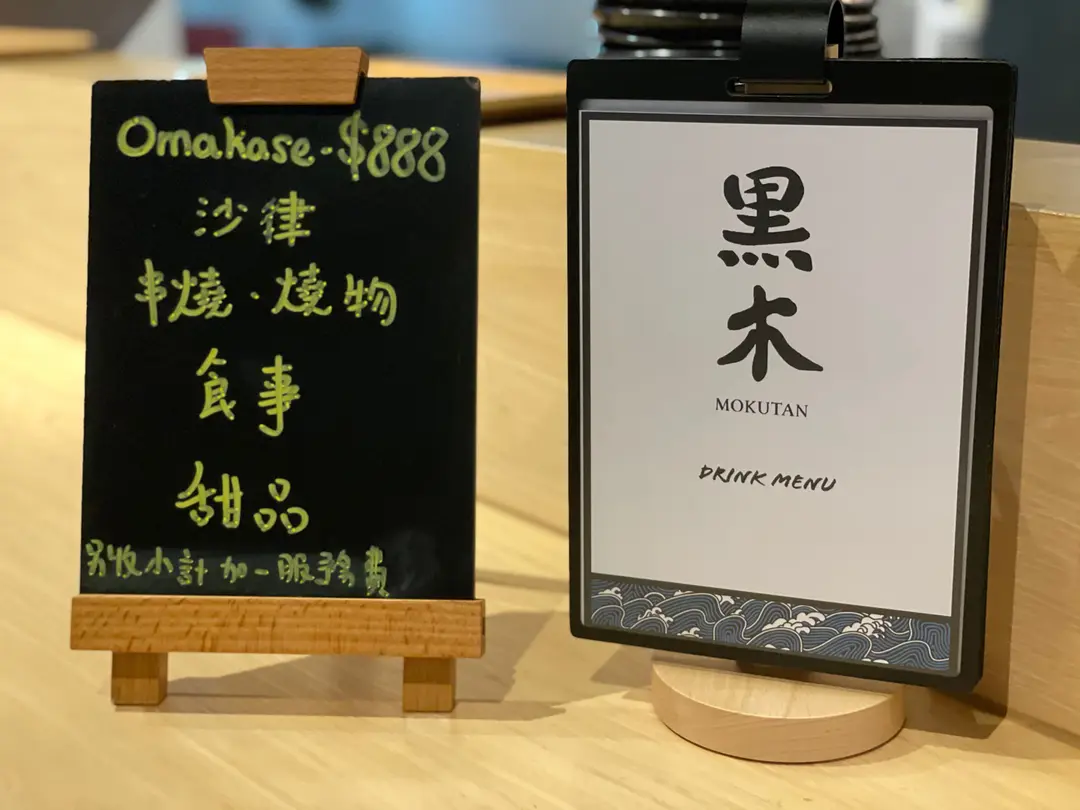 Omakase - $888
沙律
串燒 · 燒物
食事
甜品
另收小計加一服務費
黑
木
MOKUTAN
DRINK MENU